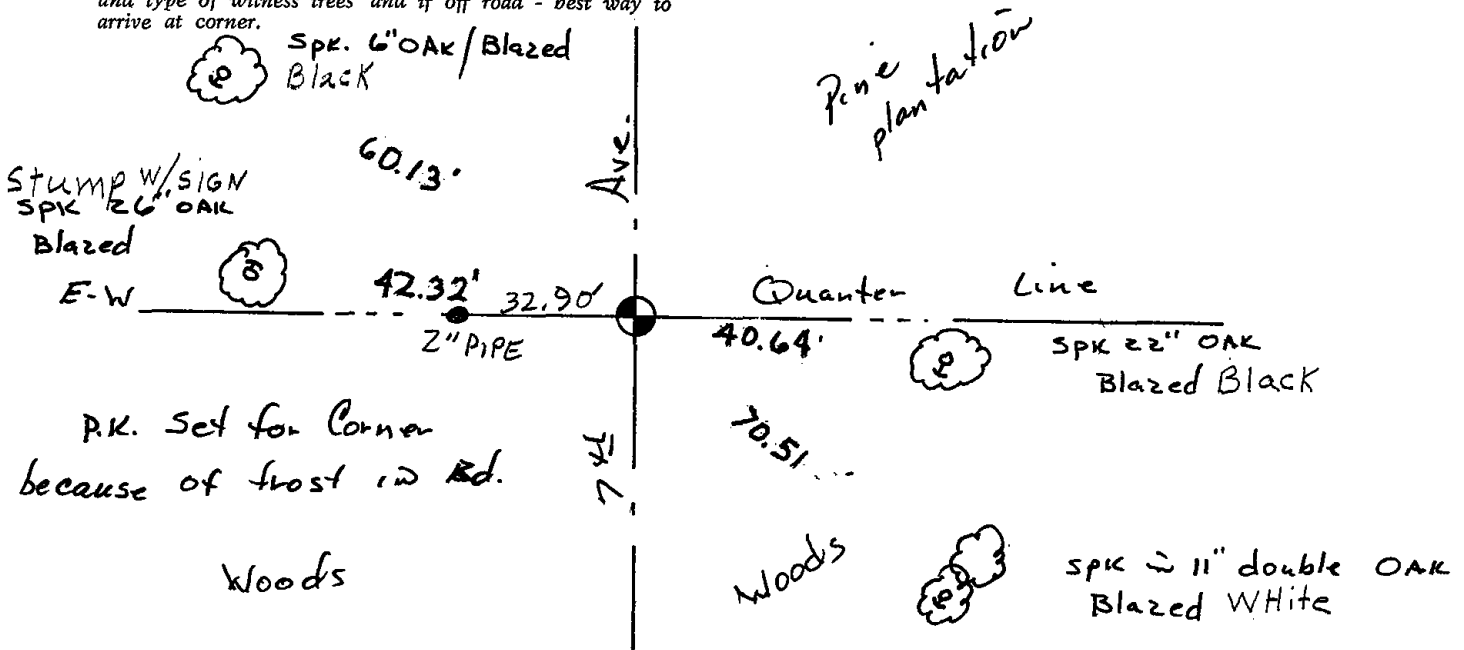 and type of witness trees and if off road - best way to
arrive at corner.
Spk. 6" OAK / Blazed
Black
Pine
plantation
60.13'
Ave.
Stump W/SIGN
SPK 26" OAK
Blazed
E-W
42.32'
32.90'
Quarter Line
2" PIPE
40.64'
SPK 22" OAK
Blazed Black
P.K. Set for Corner
because of frost in Rd.
70.51
7th
Woods
Woods
SPK in 11" double OAK
Blazed WHite